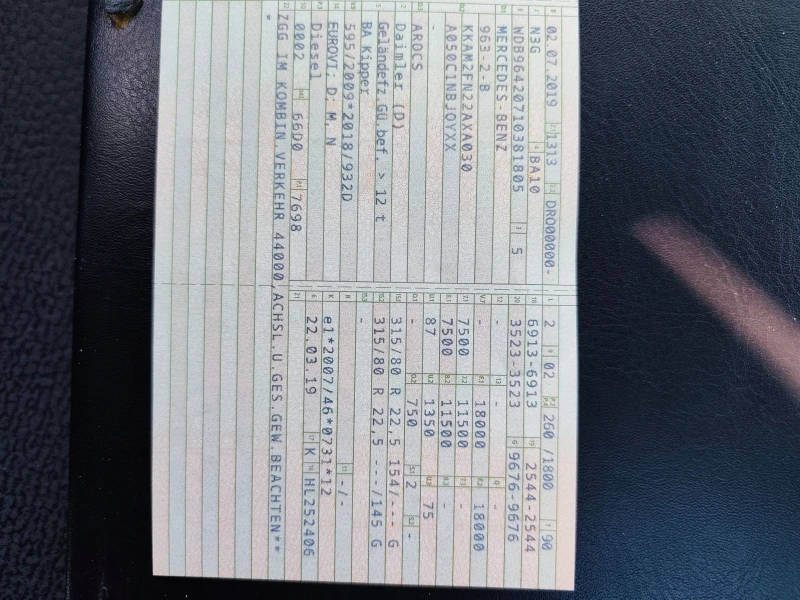 02.07.2019 1313 DRO00000-
N3G BA10
WDB96420710381805 5
MERCEDES-BENZ
963-2-B
KKAM2FN22AXA030
A050C1NBJOYXX
-
AROCS
Daimler (D)
Geländefz.Gü.bef. > 12 t
BA Kipper
595/2009*2018/932D
EUROVI; D; M, N
Diesel
0002 66D0 7698
L 2 9 02 260 /1800 90
6913-6913 2544-2544
3523-3523 9676-9676
- - -
- 18000 18000
7500 11500 -
7500 11500 -
87 1350 75
- 750 2 -
315/80 R 22,5 154/--- G
315/80 R 22,5 ---/145 G
-
-/-
e1*2007/46*0731*12
22.03.19 K HL252406
ZGG IM KOMBIN.VERKEHR 44000,ACHSL.U.GES.GEW.BEACHTEN**
*